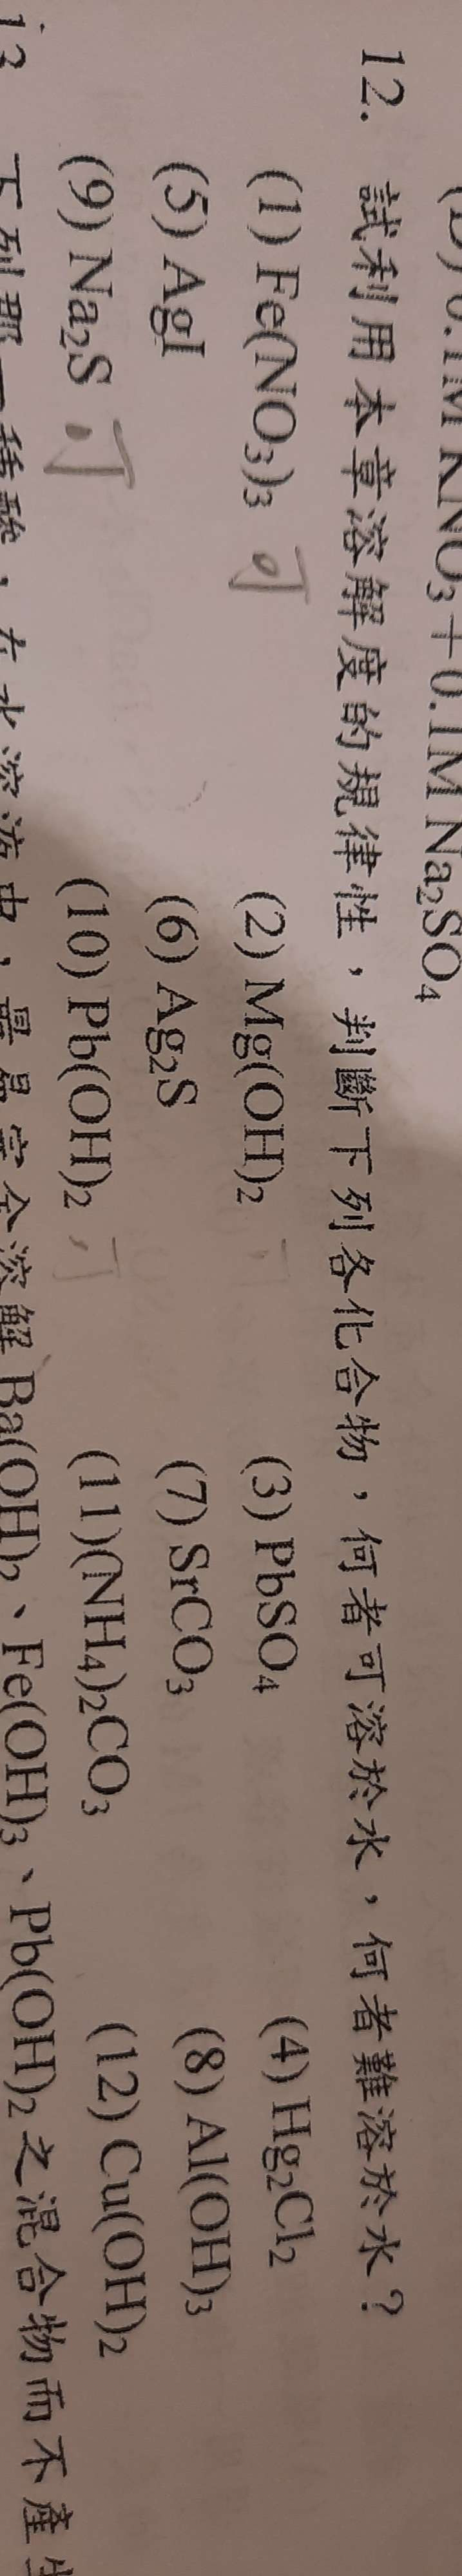 (D) 0.1M KNO₃＋0.1M Na₂SO₄
12. 試利用本章溶解度的規律性，判斷下列各化合物，何者可溶於水，何者難溶於水？
(1) Fe(NO₃)₃ 可 (2) Mg(OH)₂ (3) PbSO₄ (4) Hg₂Cl₂
(5) AgI (6) Ag₂S (7) SrCO₃ (8) Al(OH)₃
(9) Na₂S 可 (10) Pb(OH)₂ (11)(NH₄)₂CO₃ (12) Cu(OH)₂
13. 下列那一種酸，在水溶液中，最易完全溶解 Ba(OH)₂、Fe(OH)₃、Pb(OH)₂ 之混合物而不產生